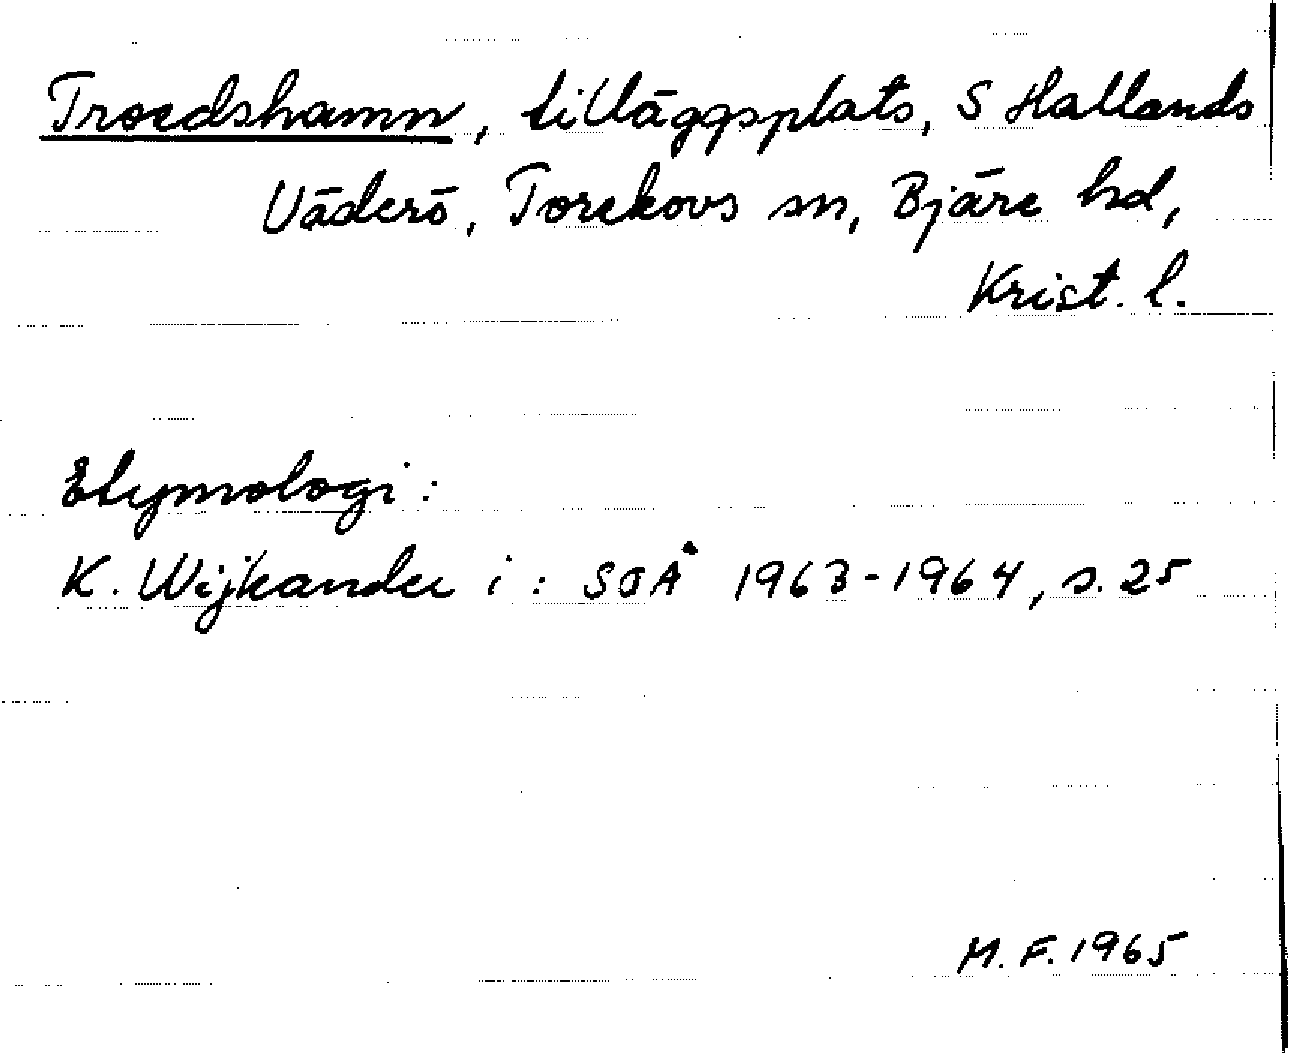 Troedshamn, tilläggsplats, S Hallands
Väderö, Torekovs sn, Bjäre hd,
Krist. l.
Etymologi:
K. Wijkander i: SOÅ 1963-1964, s. 25
M. F. 1965